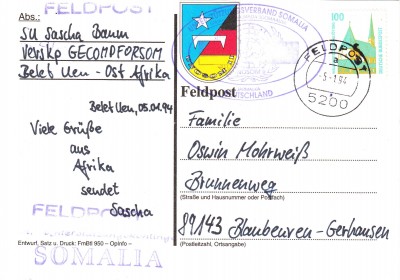 FELDPOST
Abs.:
SU Sascha Baum
GECOMDFORSOM
Belet Uen - Ost Afrika
Belet Uen, 05.01.94
Viele Grüße
aus
Afrika
sendet
Sascha
FELDPOST
Entwurf, Satz u. Druck: FmBtl 950 – OpInfo –
SOMALIA
VERBAND SOMALIA
DEUTSCHLAND
100
FELDPOST
a
5200
Feldpost
Familie
Oswin Mohrweiß
Brunnenweg
(Straße und Hausnummer oder Postfach)
89143 Blaubeuren-Gerhausen
(Postleitzahl, Ortsangabe)